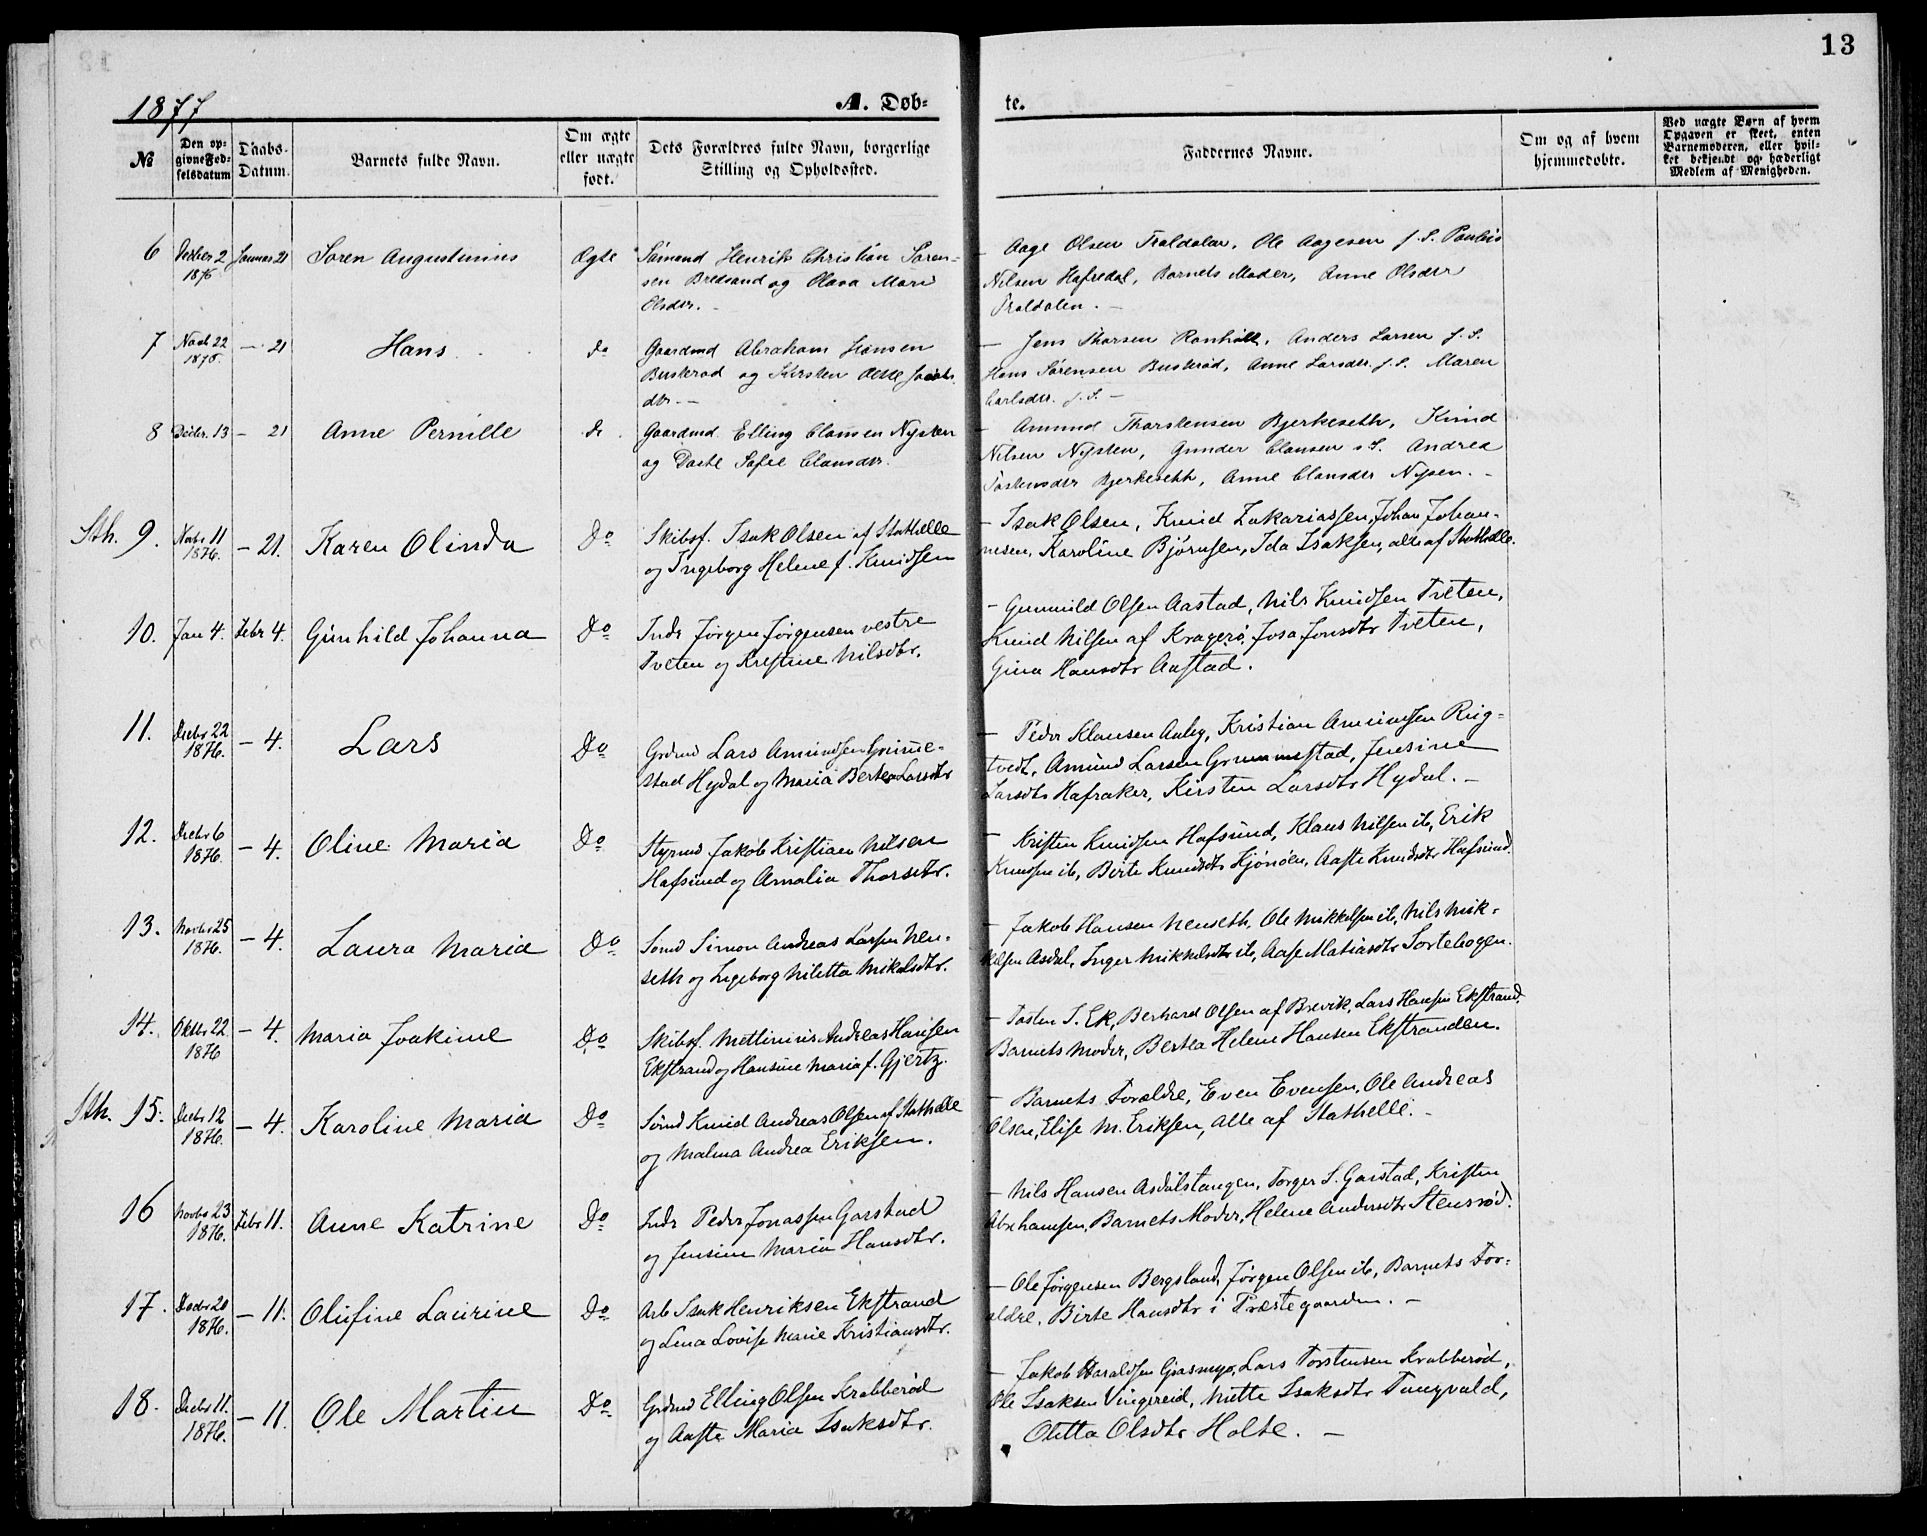 13
1877
A. Døb-
te.
No
Den op-
givne Fød-
selsdatum
Daabs-
Datum.
Barnets fulde Navn.
Om ægte
eller uægte
født.
Dets Forældres fulde Navn, borgerlige
Stilling og Opholdssted.
Faddernes Navne.
Om og af hvem
hjemmedøbte.
Ved uægte Børn af hvem
Opgaven er skeet, enten
Barnemoderen, eller hvil-
ket bekjendt og hæderligt
Medlem af Menigheden.
6
2
1876
Januar 21
Søren Augustinius
Ægte
Sømand Henrik Christian Søren-
sen Bredsand og Olava Marie
Olsdtr. -
- Aage Olsen Traldalen, Ole Aagesen f. S.
Nilsen Hafredal, Barnets Moder, Anne Olsdtr
Traldalen. -
7
22
1876.
- 21
Hans
do
Gaardmd Abraham Hansen
Buskrød og Kirsten
dtr. -
- Jens Thorsen Rønholt, Anders Larsen f. S.
Hans Sørensen Buskrød, Anne Larsdr. f. S. Maren
Carlsdtr. f. S. -
8
Decbr. 13
- 21
Anne Pernille
do
Gaardmd. Elling Clausen Nysten
og Sofie Clausdtr.
- Amund Thorstensen Bjerkeseth, Knud
Nilsen Nysten, Gunder Clausen s. S. Andrea
Tostensdtr Bjerkeseth, Anne Clausdtr Nysen. -
Sth. 9.
Novbr 11
1876.
- 21.
Karen Olinda
Do
Skibsf. Isak Olsen af Stathelle
og Ingeborg Helene f. Knudsen
- Isak Olsen, Knud Zakariassen, Johan Johan-
nesen, Karoline Bjørnsen, Ida Isaksen, alle af Stathelle.
10.
Jan 4.
Febr 4.
Gunhild Johanna
Do
Inds Jørgen Jørgensen vestre
Tveten og Kristine Nilsdtr.
- Gunnuld Olsen Aastad, Nils Knudsen Tveten,
Knud Nilsen af Kragerø, Josa Jonsdtr Tveten,
Gina Hansdtr Aastad.
11.
Decbr 22
1876.
- 4.
Lars
Do
Grdmd Lars Amundsen Grimme-
stad Hydal og Maria Bertea Larsdtr
- Peder Klausen Aaby, Kristian Amundsen Rug-
tvedt, Amund Larsen Grummestad, Jensine
Larsdtr Hafraker, Kirsten Larsdtr Hydal. -
12.
Decbr 6
1876.
- 4.
Oline Maria
Do
Styrmd Jakob Kristian Nilsen
Hafsund og Amalia Thorsdtr.
- Kristen Knudsen Hafsund, Klaus Nilsen ib, Erik
Knudsen ib, Birte Knudsdtr Hjønøen, Aaste Knudsdtr Hafsund.
13.
Novbr 25
1876.
- 4.
Laura Maria
Do
Sømd Simon Andreas Larsen Nen-
seth og Ingeborg Niletta Mikelsdtr.
- Jakob Hansen Nenseth, Ole Mikkelsen ib, Nils Mik-
kelsen Asdal, Inger Mikkelsdtr ib, Aase Matiasdtr Sortebogen.
14.
Oktbr 22
1876
- 4.
Maria Joakime
Do
Skibsf. Mettinius Andreas Hansen
Ekstrand og Hansine Maria f. Gjertz.
- Tosten T. Ek, Berhard Olsen af Brevik, Lars Hansen Ekstrand
Barnets Moder, Bertea Helene Hansen Ekstranden.
Sth. 15.
Decbr 12
1876.
- 4.
Karoline Maria
Do
Sømd Knud Andreas Olsen af Stathelle
og Malina Andrea Eriksen.
- Barnets Forældre, Even Evensen, Ole Andreas
Olsen, Elise M. Eriksen, Alle af Stathelle. -
16
Novbr 23
1876.
Febr 11.
Anne Katrine
Do
Inds Peder Jonassen Garstad
og Jensine Maria Hansdtr.
- Nils Hansen Asdalstangen, Torger S. Garstad, Kristen
Abrahamsen, Barnets Moder, Helene Andersdtr Stensrød.
17.
Decbr 20
1876.
- 11.
Olufine Laurine
Do
Arb Isak Henriksen Ekstrand
og Lena Lovise Marie Kristiansdtr.
- Ole Jørgensen Bergsland, Jørgen Olsen ib, Barnets For-
ældre, Birte Hansdtr i Præstegaarden. -
18.
Decbr 11.
1876.
- 11.
Ole Martin
Do
Grdmd Elling Olsen Krabberød
og Aaste Maria Isaksdtr.
- Jakob Haraldsen Grasmyr, Lars Torstensen Krabberød,
Ole Isaksen Vingereid, Mette Isaksdtr Tangvald,
Oletta Olsdtr Holte. -